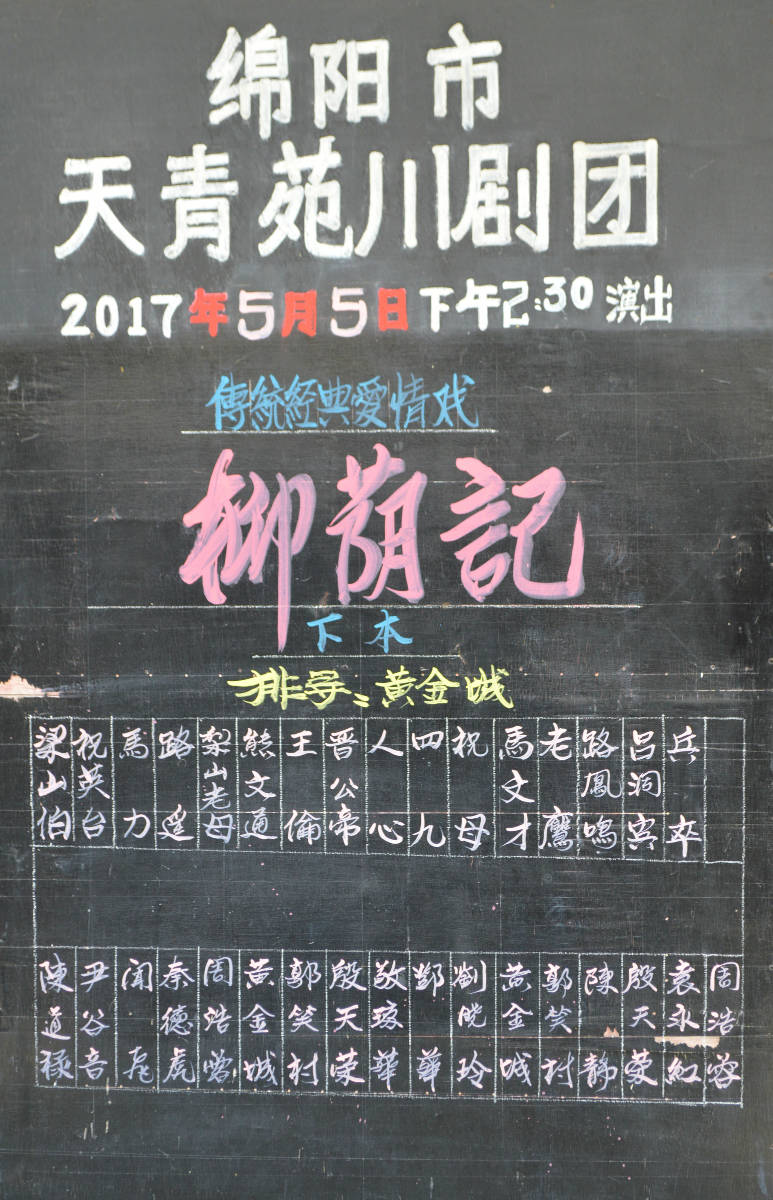 绵阳市
天青苑川剧团
2017年5月5日下午2:30演出
傳統経典愛情戏
柳荫記
下本
排导:黄金城
梁山伯 祝英台 馬力 路遥 梨山老母 熊文通 王倫 晋公帝 人心 四九 祝母 馬文才 老鷹 路鳳鳴 吕洞宾 兵卒
陳道禄 尹谷音 闻 秦德虎 周浩 黄金城 郭笑村 殷天荣 敬琼華 鄧華 劉晓玲 黄金城 郭笑村 陳静 殷天荣 袁永紅 周浩蓉